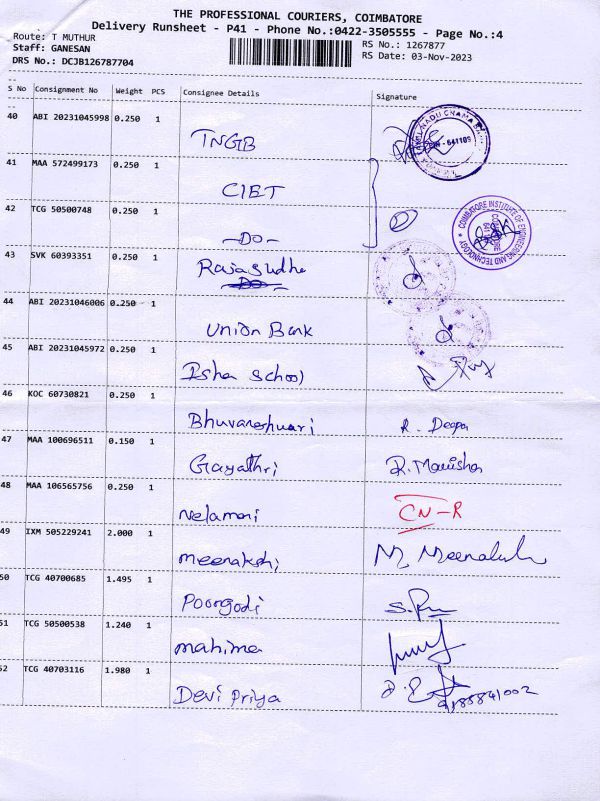 THE PROFESSIONAL COURIERS, COIMBATORE
Delivery Runsheet - P41 - Phone No.:0422-3505555 - Page No.:4
Route: T MUTHUR
Staff: GANESAN
RS No.: 1267877
DRS No.: DCJB126787704
RS Date: 03-Nov-2023
S No Consignment No Weight PCS Consignee Details Signature
40 ABI 20231045998 0.250 1
TNGB
41 MAA 572499173 0.250 1
CIET
42 TCG 50500748 0.250 1
-DO-
COIMBATORE INSTITUTE OF ENGINEERING AND TECHNOLOGY
COIMBATORE
43 SVK 60393351 0.250 1
Rajasudha
44 ABI 20231046006 0.250 1
Union Bank
45 ABI 20231045972 0.250 1
Isha School
46 KOC 60730821 0.250 1
Bhuvaneshwari R. Deepa
47 MAA 100696511 0.150 1
Gayathri R. Manisha
48 MAA 106565756 0.250 1
Nelamani CN-R
49 IXM 505229241 2.000 1
meenakshi M. Meenakshi
50 TCG 40700685 1.495 1
Poongodi
51 TCG 50500538 1.240 1
mahima
52 TCG 40703116 1.980 1
Devi Priya